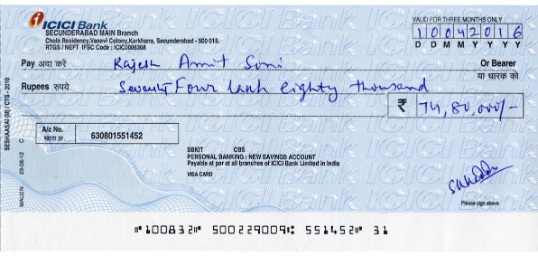 ICICI Bank
SECUNDERABAD MAIN Branch
Chola Residency, Vasavi Colony, Karkhana, Secunderabad - 500 015.
RTGS / NEFT IFSC Code : ICIC0006308
VALID FOR THREE MONTHS ONLY
1 0 0 4 2 0 1 6
D D M M Y Y Y Y
Pay अदा करें Rajesh Amit Soni Or Bearer
या धारक को
Rupees रुपये Seventy Four lakh eighty thousand
₹ 74,80,000/-
A/c No. 630801551452
खाता क्र.
SBKIT CBS
PERSONAL BANKING : NEW SAVINGS ACCOUNT
Payable at par at all branches of ICICI Bank Limited in India
VISA CARD
Please sign above
⑈100832⑈ 500229009⑆ 551452⑈ 31